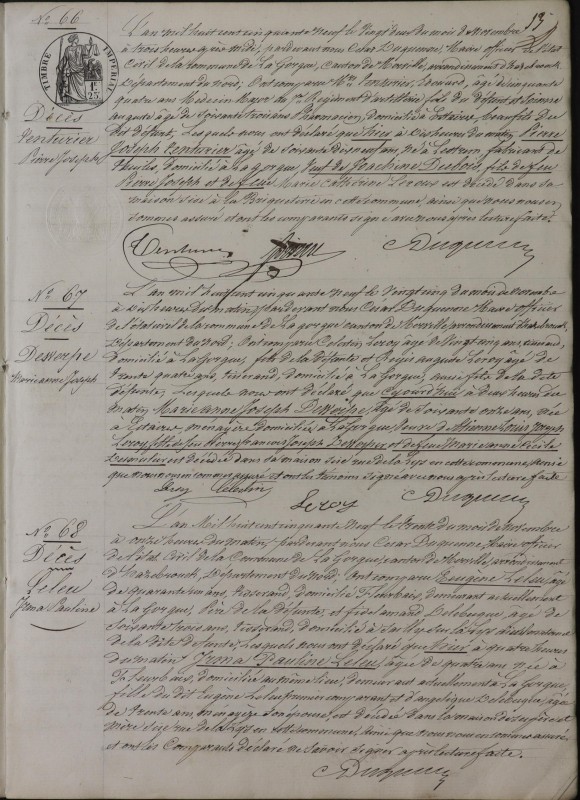 13
N° 66
TIMBRE IMPÉRIAL
Décès
Venturier
Pierre Joseph
L'an mil huit cent cinquante neuf le vingt deux du mois de Novembre
à trois heures après midi, pardevant nous Cesar Duquenne, Maire officier de l'état
Civil de la commune de La Gorgue, Canton de Merville, arrondissement d'Hazebrouck,
Département du Nord; Ont comparu Venturier, Edouard, âgé de cinquante
quatre ans Médecin Major du Régiment d'artillerie fils du défunt et
auguste âgé de soixante trois ans Pharmacien, domicilié à Estaires,
dit défunt, Lesquels nous ont déclaré que hier à dix heures du matin, Pierre
Joseph Venturier âgé de soixante dix neuf ans, né à Lestrem fabricant de
thuiles, domicilié à La Gorgue, Veuf de Joachine Dubois, fils de feu
Pierre Joseph et de feue Marie Catherine Leroux est décédé dans sa
maison sise à la Briqueterie en cette commune, ainsi que nous nous en
sommes assuré et ont les comparants signé avec nous après lecture faite.
Duquenne
N° 67
Décès
Marie anne Joseph
L'an mil huit cent cinquante neuf le vingt cinq du mois de novembre
à dix heures du matin, Pardevant nous Cesar Duquenne Maire officier
de l'état civil de la commune de La gorgue canton de Merville, arrondissement d'hazebrouck,
Département du Nord; Ont comparu Celestin Leroy âgé de vingt cinq ans,
domicilié à La Gorgue, fils de la défunte et Régis auguste Leroy âgé de
trente quatre ans, tisserand, domicilié à La Gorgue, aussi fils de la dite
défunte, Lesquels nous ont déclaré que cejourd'hui à deux heures du
matin, Marie anne Joseph âgée de soixante onze ans, née
à Estaires, ménagère domiciliée à La Gorgue, Veuve de Louis Joseph
Leroy, fille de feu Pierre françois Joseph et de feue Marie anne
est décédée dans sa maison sise rue de la Lys en cette commune, ainsi
que nous nous en sommes assuré et ont les témoins signé avec nous après lecture faite
Leroy Celestin
Leroy
Duquenne
N° 68
Décès
Leleu
Irma Pauline
L'an Mil huit cent cinquante Neuf le trente du mois de Novembre
à onze heures du matin, Pardevant nous Cesar Duquenne, Maire officier
de l'état Civil de la Commune de La Gorgue, canton de Merville, arrondissement
d'Hazebrouck, Département du Nord. Ont comparu Eugène Leleu, âgé
de quarante un ans, tisserand, domicilié à Fleurbaix, demeurant actuellement
à La Gorgue, Père de la défunte, et fidèle amand Delebuque, âgé de
soixante trois ans, tisserand, domicilié à Sailly sur la Lys
de la dite défunte, Lesquels nous ont déclaré que hier à quatre heures
du matin Irma Pauline Leleu, âgée de quatre ans née à
Fleurbaix, domiciliée au même lieu, demeurant actuellement à La Gorgue,
fille du dit Eugène Leleu premier comparant et d'angelique Delebuque, âgée
de trente ans, ménagère son épouse, est décédée dans la maison de ses père et
mère sise rue de la Lys en cette commune, ainsi que nous nous en sommes assuré,
et ont les Comparants déclaré ne savoir signer après lecture faite.
Duquenne